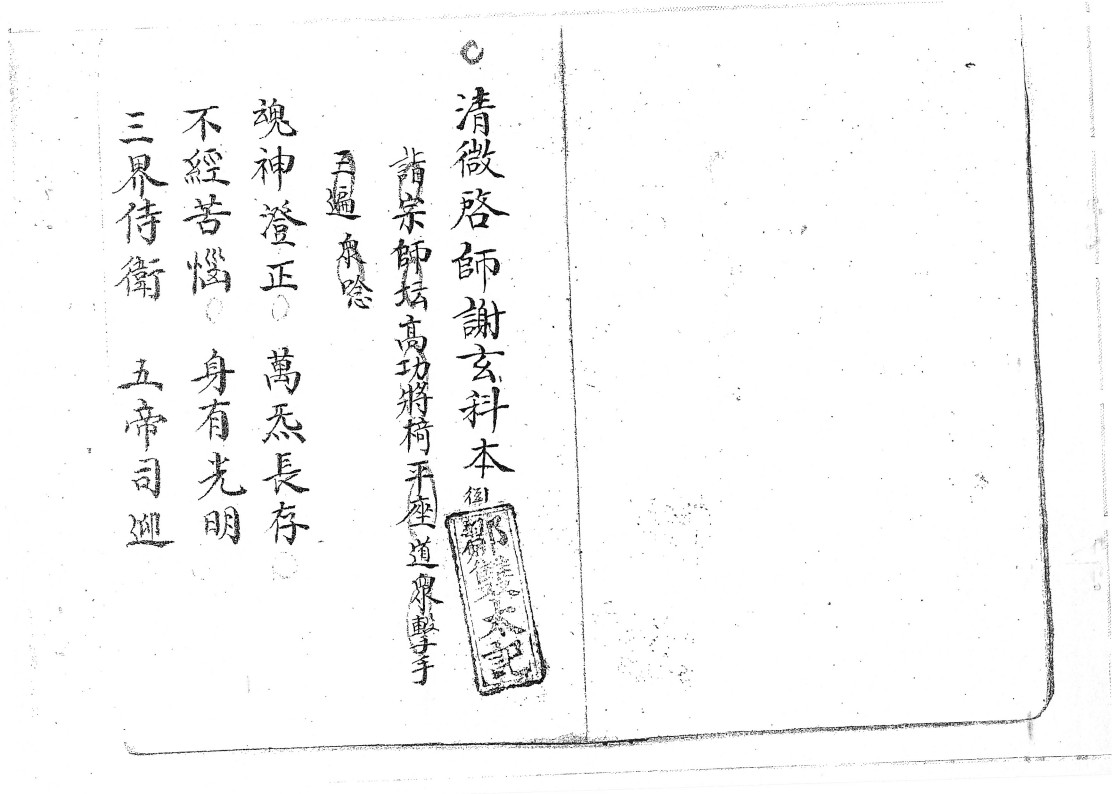 清微啓師謝玄科本
鄒雙太記
詣宗師坛高功將椅平座道衆擊手
三遍衆唸
魂神澄正 萬炁長存
不經苦惱 身有光明
三界侍衛 五帝司迎